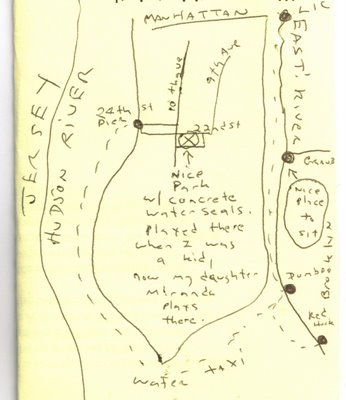 MANHATTAN
LIC
EAST RIVER
JERSEY
HUDSON RIVER
10th ave
9th Ave
24th st
Pier
22nd st
Nice
Park
w/ concrete
water seals.
Played there
when I was
a kid,
now my daughter
Miranda
plays
there.
Nice
place
to
sit
BROOKLYN
Dumbo
Red
Hook
water
TAXI